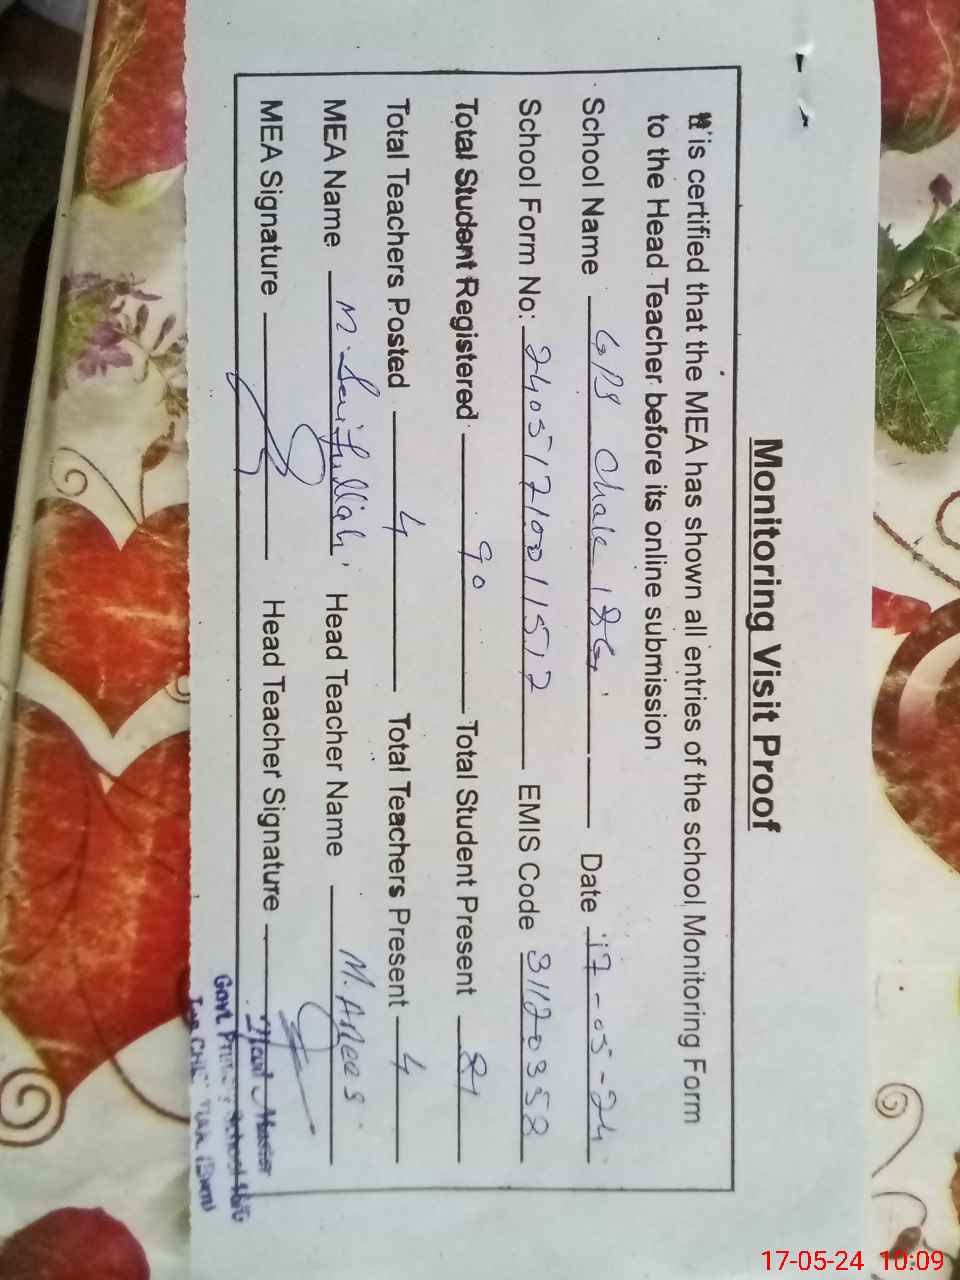 Monitoring Visit Proof
It is certified that the MEA has shown all entries of the school Monitoring Form
to the Head Teacher before its online submission
School Name GPS Chak 18G Date 17-05-24
School Form No: 24051710011517 EMIS Code 31120358
Total Student Registered 90 Total Student Present 81
Total Teachers Posted 4 Total Teachers Present 4
MEA Name M. Saifullah Head Teacher Name M. Anees
MEA Signature Head Teacher Signature
Head Master
Govt. Primary School
17-05-24 10:09